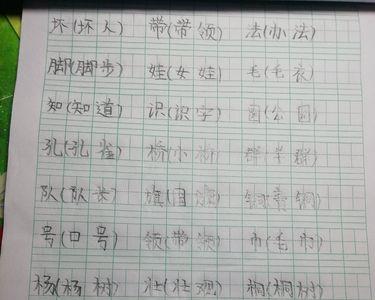 坏(坏人) 带(带领) 法(办法)
脚(脚步) 娃(女娃) 毛(毛衣)
知(知道) 识(识字) 园(公园)
孔(孔雀) 桥(小桥) 群(羊群)
队(队长) 旗(国旗) 铜(黄铜)
号(口号) 领(带领) 巾(毛巾)
杨(杨树) 壮(壮观) 桐(桐树)